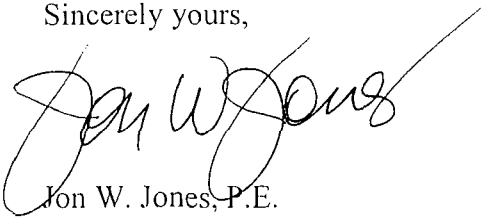 Sincerely yours,
Jon W Jones
Jon W. Jones, P.E.